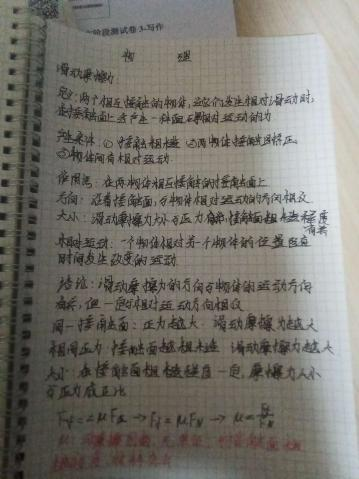 阶段测试卷3-写作
物 理
滑动摩擦力
定义:两个相互接触的物体,当它们发生相对滑动时,
在接触面上会产生一种阻碍相对运动的力
产生条件:①接触面粗糙 ②两物体接触且挤压
③物体间有相对运动
作用点:在两物体相互接触的接触面上
方向:沿着接触面,与物体相对运动的方向相反
大小:滑动摩擦力大小与压力 接触面粗糙程度
有关
相对运动:一个物体相对另一个物体的位置随
时间发生改变的运动
结论:滑动摩擦力的方向与物体的运动方向
无关,但一定与相对运动方向相反
同一接触面:压力越大 滑动摩擦力越大
相同压力:接触面越粗糙 滑动摩擦力越大
大小:在接触面粗糙程度一定,摩擦力大小
与压力成正比
μ:动摩擦因数,无单位,